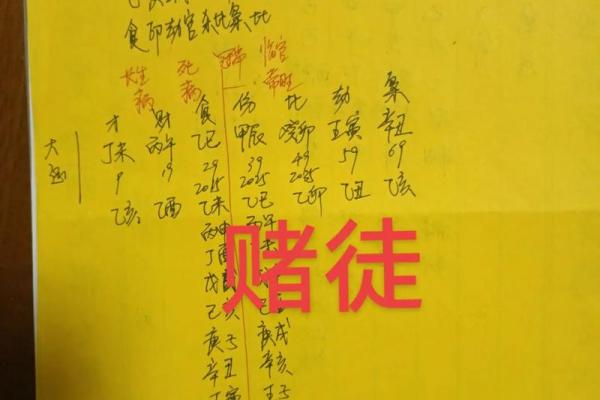 食印劫官杀比枭比
长生 死 冠带 临官
病 病 帝旺
才 财 食 伤 比 劫 枭
大运 丁未 丙午 乙巳 甲辰 癸卯 壬寅 辛丑
9 19 29 39 49 59 69
2015 2025 2035
乙亥 乙酉 乙未 乙巳 乙卯 乙丑 乙亥
丙申 丙午
丁酉
戊戌
己亥
庚子 庚戌
辛丑 辛亥
壬子
赌徒